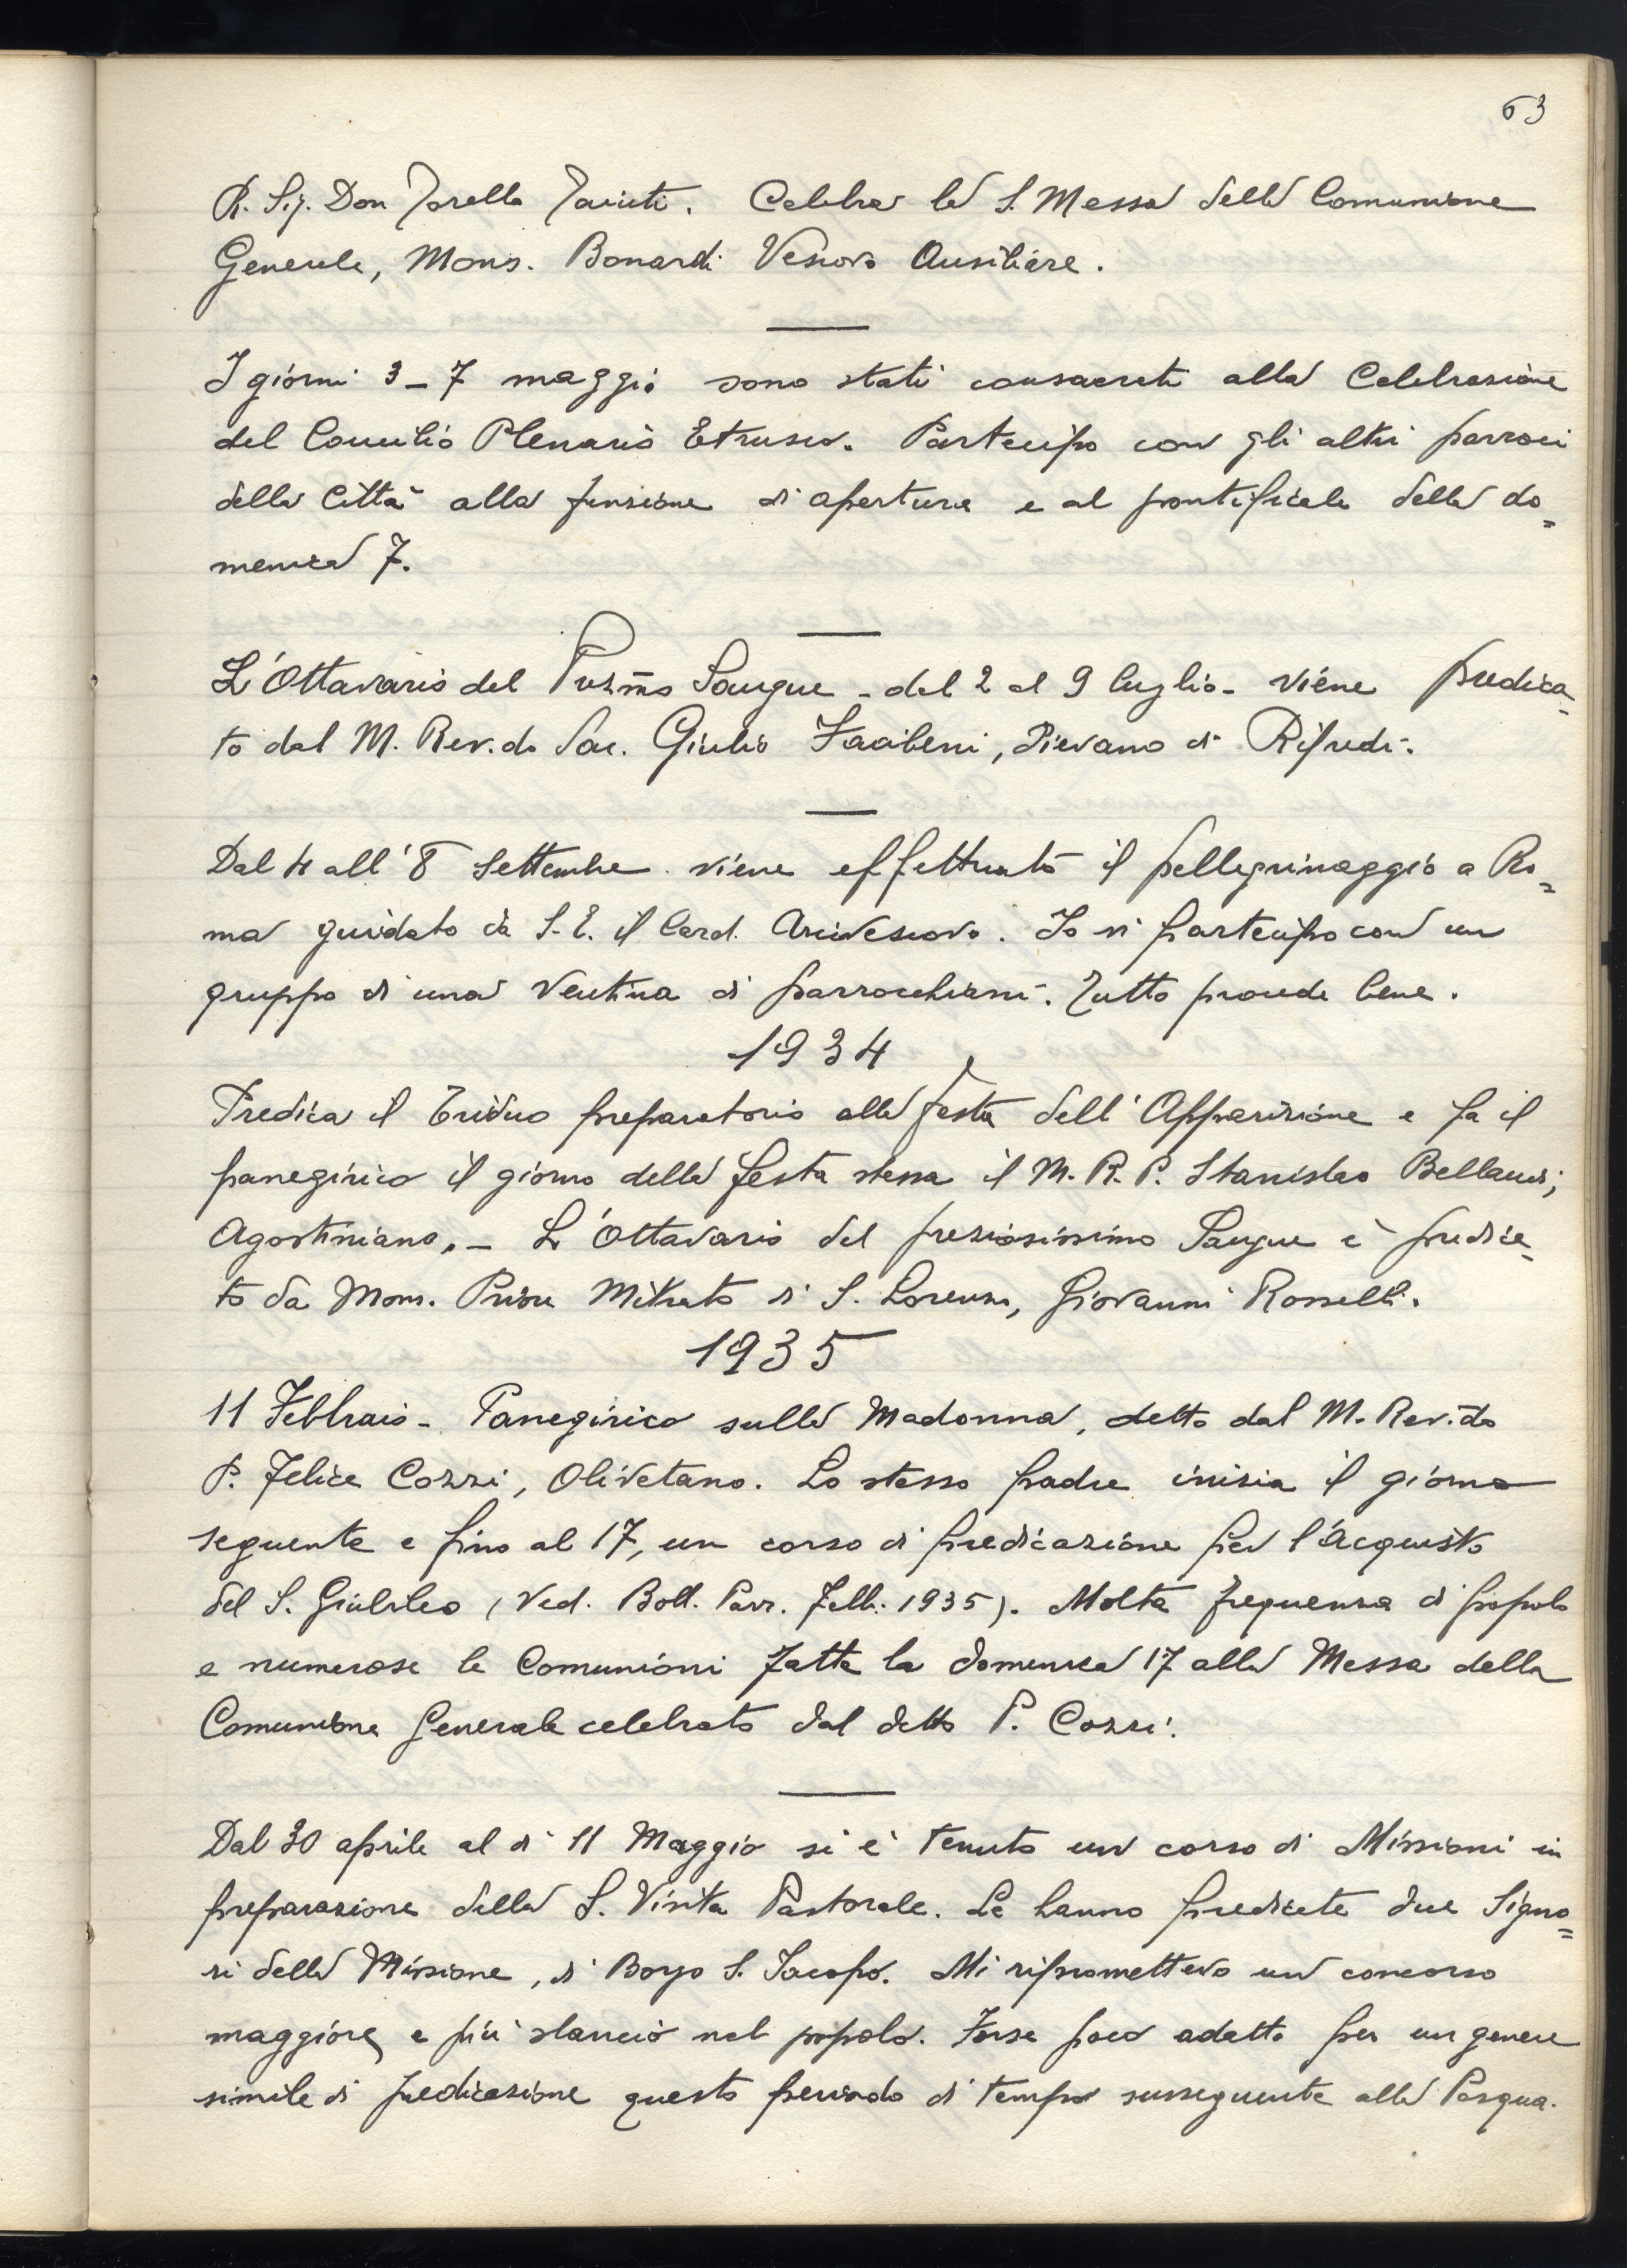 63
R. Sig. Don Torello Taiuti. Celebra la S. Messa della Comunione
Generale, Mons. Bonardi Vescovo Ausiliare.
I giorni 3-7 maggio sono stati consacrati alla Celebrazione
del Concilio Plenario Etrusco. Partecipo con gli altri parroci
della Città alla funzione di apertura e al pontificale della do=
menica 7.
L'Ottavario del Prez.mo Sangue - dal 2 al 9 luglio - viene predica=
to dal M. Rev.do Sac. Giulio Facibeni, Pievano di Rifredi.
Dal 4 all'8 Settembre viene effettuato il pellegrinaggio a Ro=
ma guidato da S. E. il Card. Arcivescovo. Io vi partecipo con un
gruppo di una ventina di parrocchiani. Tutto procede bene.
1934
Predica il Triduo preparatorio alla festa dell'Apparizione e fa il
panegirico il giorno della festa stessa il M. R. P. Stanislao Bellandi,
Agostiniano. - L'Ottavario del preziosissimo Sangue è predica=
to da Mons. Priore Mitrato di S. Lorenzo, Giovanni Rosselli.
1935
11 Febbraio - Panegirico sulla Madonna, detto dal M. Rev.do
P. Felice Cozzi, Olivetano. Lo stesso padre inizia il giorno
seguente e fino al 17, un corso di predicazione per l'acquisto
del S. Giubileo (Ved. Boll. Parr. Febb. 1935). Molta frequenza di popolo
e numerose le Comunioni fatte la domenica 17 alla Messa della
Comunione Generale celebrata dal detto P. Cozzi.
Dal 30 aprile al dì 11 Maggio si è tenuto un corso di Missioni in
preparazione della S. Visita Pastorale. Le hanno predicate due Signo=
ri della Missione, di Borgo S. Jacopo. Mi ripromettevo un concorso
maggiore e più slancio nel popolo. Forse poco adatto per un genere
simile di predicazione questo periodo di tempo susseguente alla Pasqua.